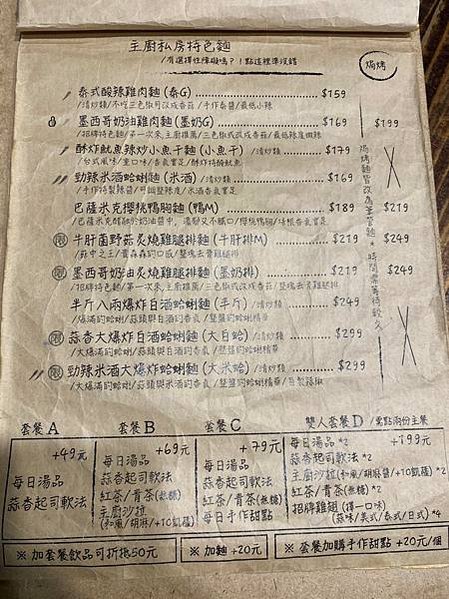 主廚私房特色麵
/有選擇性障礙嗎?!點這裡準沒錯
焗烤
泰式酸辣雞肉麵(泰G) $159
/清炒類/不吃三色椒可改成香菇/手作泰醬/最低小辣
墨西哥奶油雞肉麵(墨西G) $169 $199
/招牌特色麵/第一次來,主廚推薦/三色椒可改成香菇/最低辣度微辣
酥炸魷魚辣炒小魚干麵(小魚干)/清炒類 $179
/台式風味/重口味/香氣實足/酥炸特級魷魚
勁辣米酒蛤蜊麵(米酒)/清炒類 $169
/手作特製辣醬/可調整辣度/米酒香氣實足
巴薩米克櫻桃鴨胸麵(鴨M) $189 $219
牛肝菌野菇炙燒雞腿排麵(牛肝排M) $219 $249
墨西哥奶油炙燒雞腿排麵(墨奶排) $219 $249
/招牌特色麵/第一次來,主廚推薦/三色椒可改成香菇/整塊去骨雞腿排
半斤八兩爆炸白酒蛤蜊麵(半斤)/清炒類 $249
/爆滿的蛤蜊/蒜頭與白酒的香氣/整盤的蛤蜊精華
蒜香大爆炸白酒蛤蜊麵(大白蛤)/清炒類 $299
/大爆滿的蛤蜊/蒜頭與白酒的香氣/整盤的蛤蜊精華
勁辣米酒大爆炸蛤蜊麵(大米蛤)/清炒類 $299
/大爆滿的蛤蜊/蒜頭與米酒的香氣/整盤的蛤蜊精華/自製辣椒
焗烤麵皆改為筆管麵*時間需等待較久
套餐A
+49元
每日湯品
蒜香起司軟法
套餐B
+69元
每日湯品
蒜香起司軟法
紅茶/青茶(無糖)
主廚沙拉
(和風/胡麻/+10凱薩)
套餐C
+79元
每日湯品
蒜香起司軟法
紅茶/青茶(無糖)
每日手作甜點
雙人套餐D/需點兩份主餐
+199元
每日湯品*2
蒜香起司軟法*2
主廚沙拉(和風/胡麻醬/+10凱薩)*2
紅茶/青茶(無糖)*2
招牌雞翅(擇一口味)
(蒜味/美式/泰式/日式)*4
※加套餐飲品可折抵50元
※加麵+20元
※套餐加購手作甜點+20元/個